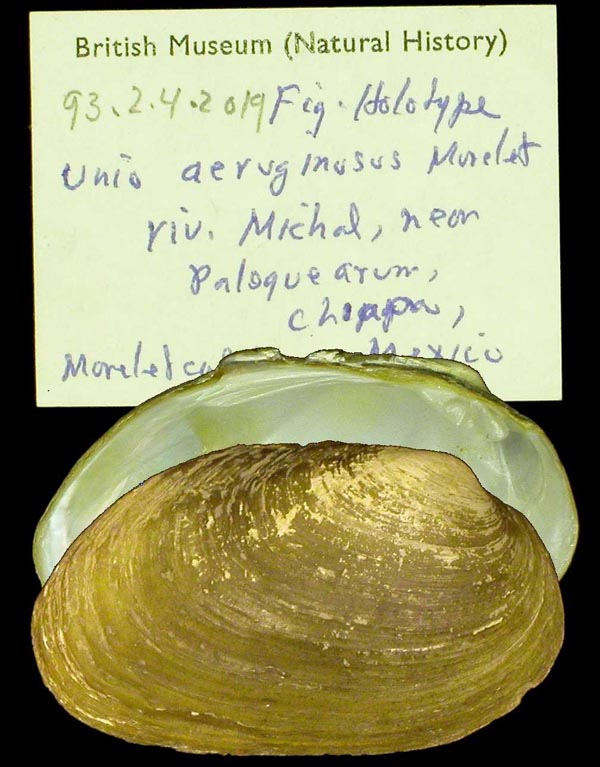 British Museum (Natural History)
93.2.4.2019 Fig. Holotype
Unio aeruginosus Morelet
riv. Michal, near
Paloquearum,
Chiapas,
Morelet Mexico